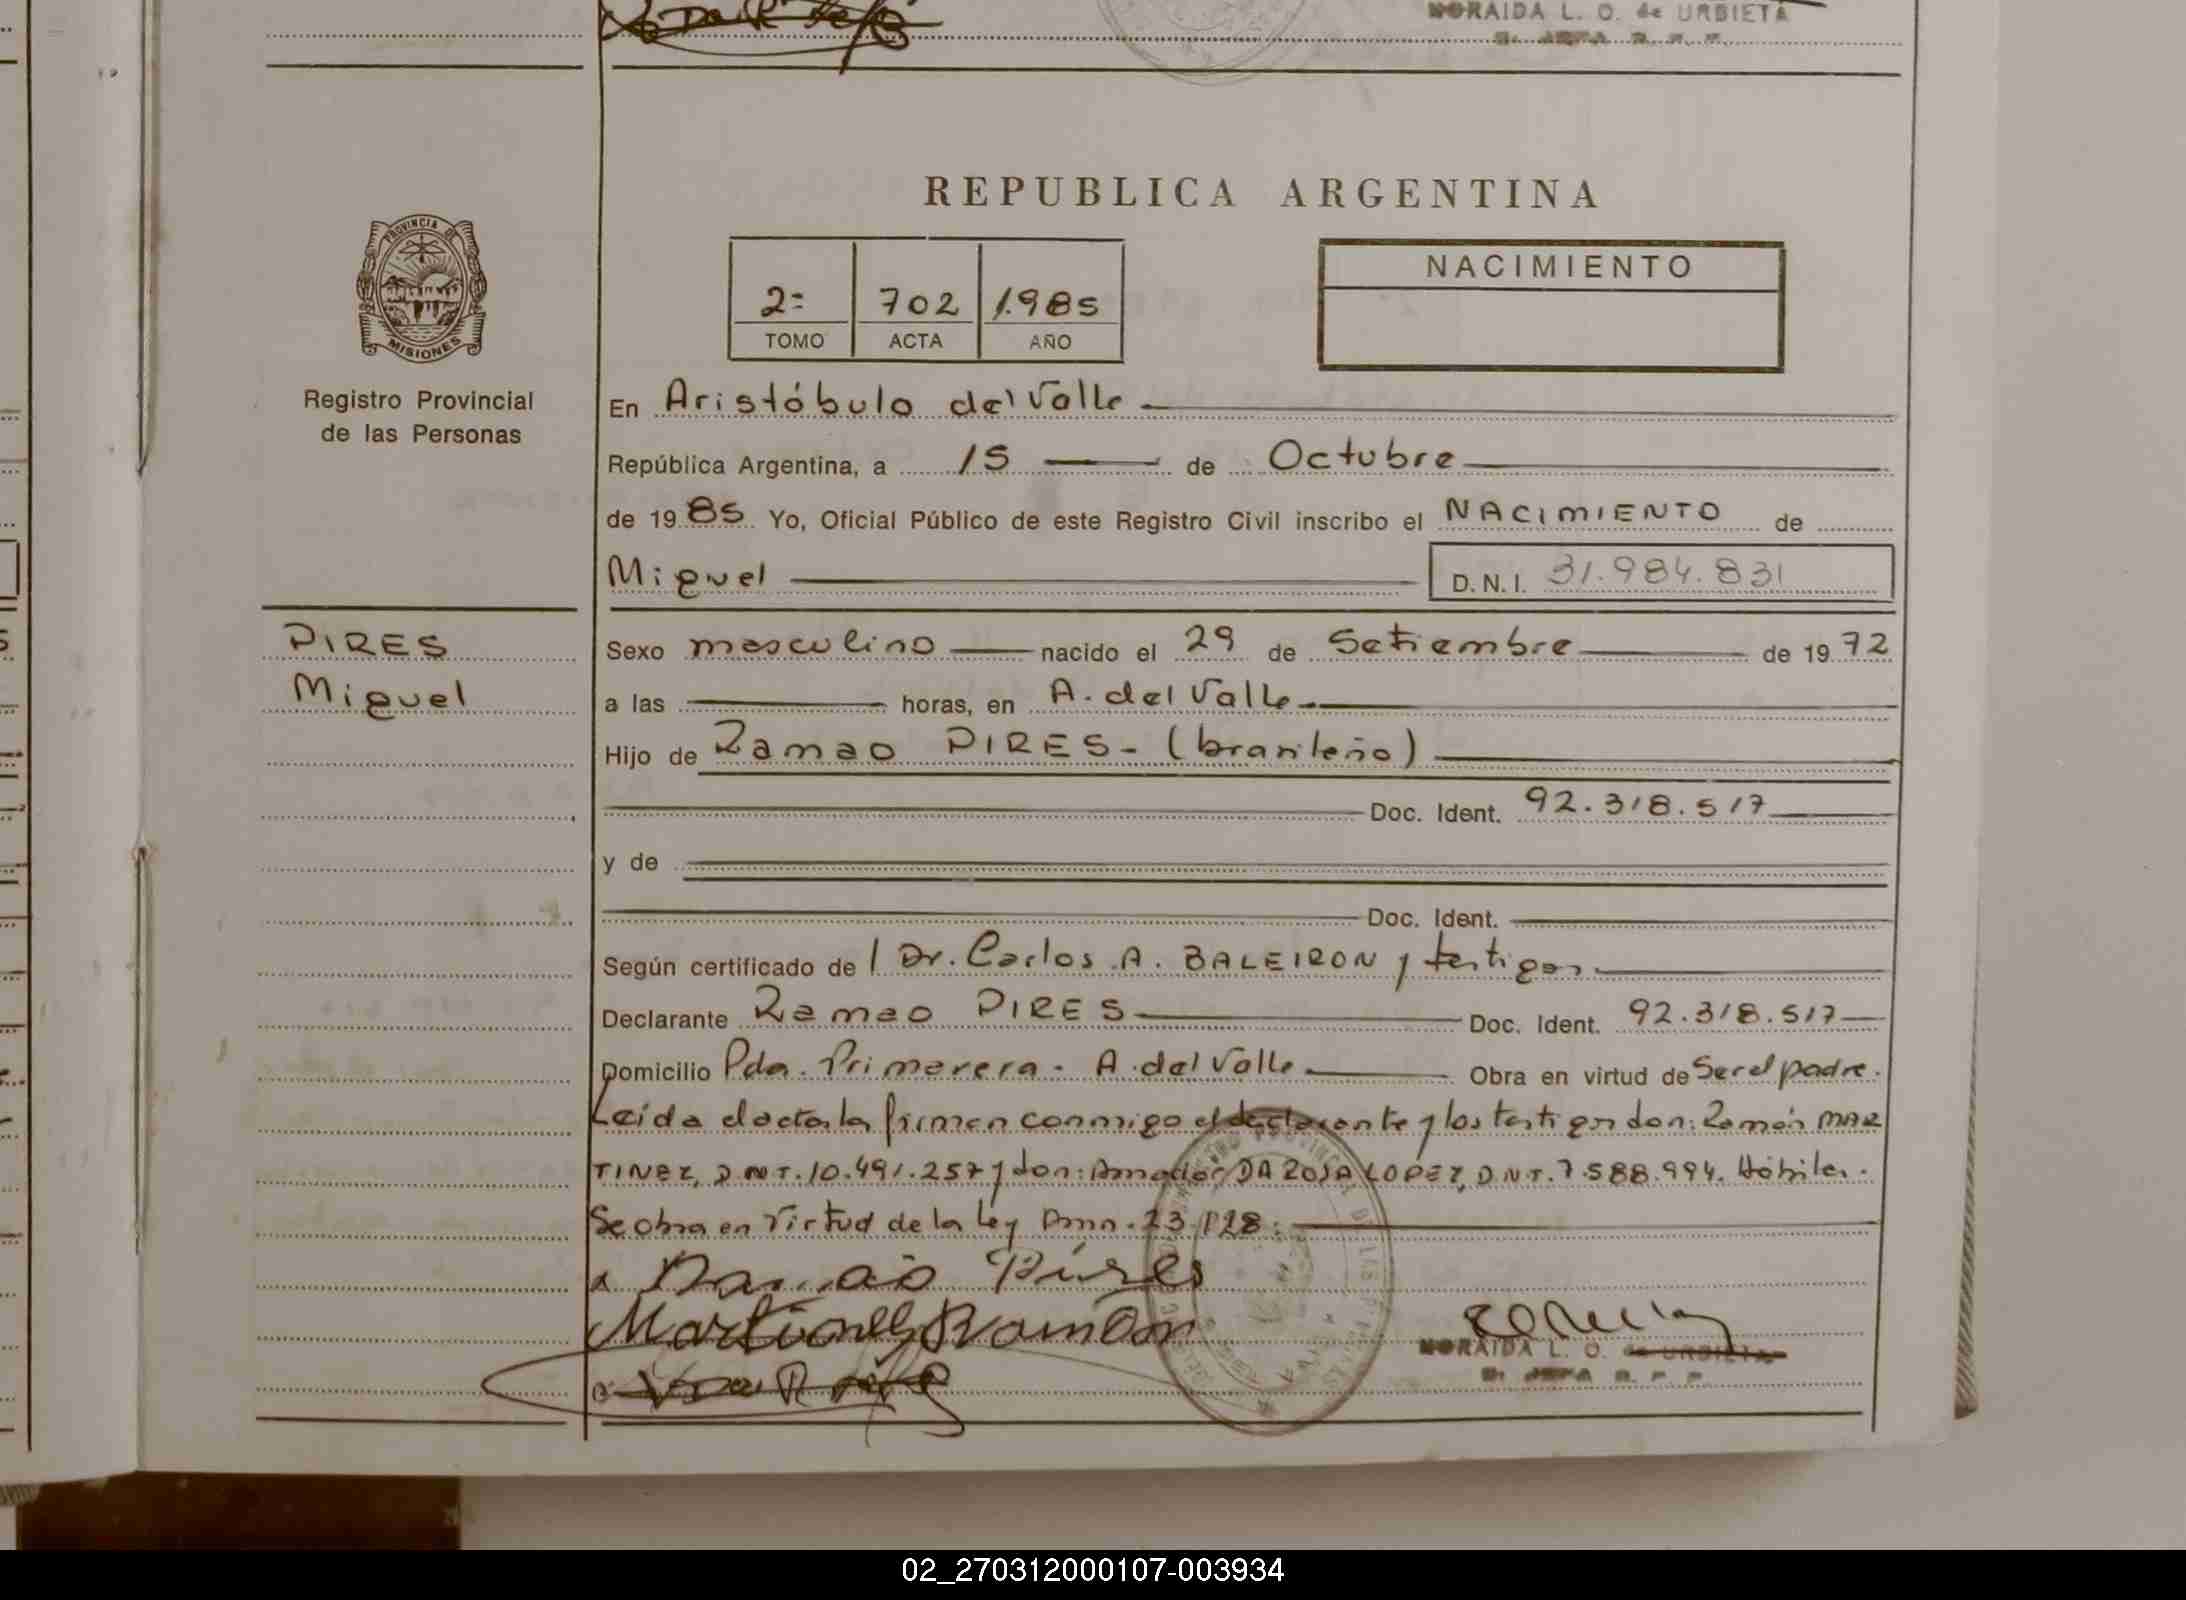 MORAIDA L. O. de URBIETA
REPUBLICA ARGENTINA
PROVINCIA DE
MISIONES
Registro Provincial
de las Personas
2= 702 1.985
TOMO ACTA AÑO
NACIMIENTO
En Aristóbulo del Valle
República Argentina, a 15 de Octubre
de 19 85 Yo, Oficial Público de este Registro Civil inscribo el NACIMIENTO de
Miguel D. N. I. 31.984.831
PIRES
Miguel
Sexo masculino nacido el 29 de Setiembre de 19 72
a las horas, en A. del Valle
Hijo de Ramao PIRES - (brasileño)
Doc. Ident. 92.318.517
y de
Doc. Ident.
Según certificado de l Dr. Carlos A. BALEIRON y testigos
Declarante Ramao PIRES Doc. Ident. 92.318.517
Domicilio Pda. Primavera - A. del Valle Obra en virtud de Ser el padre.
Leida el acta la firman conmigo el declarante y los testigos don: Ramón MAR
TINEZ, D.N.I. 10.491.257 y don: Amador DA ROSA LOPEZ, D.N.I. 7.588.994. Hábiles.
Se obra en virtud de la Ley Nac. 23.128.
Ramao Pires
Martinez Ramón
MORAIDA L. O. de URBIETA
02_270312000107-003934